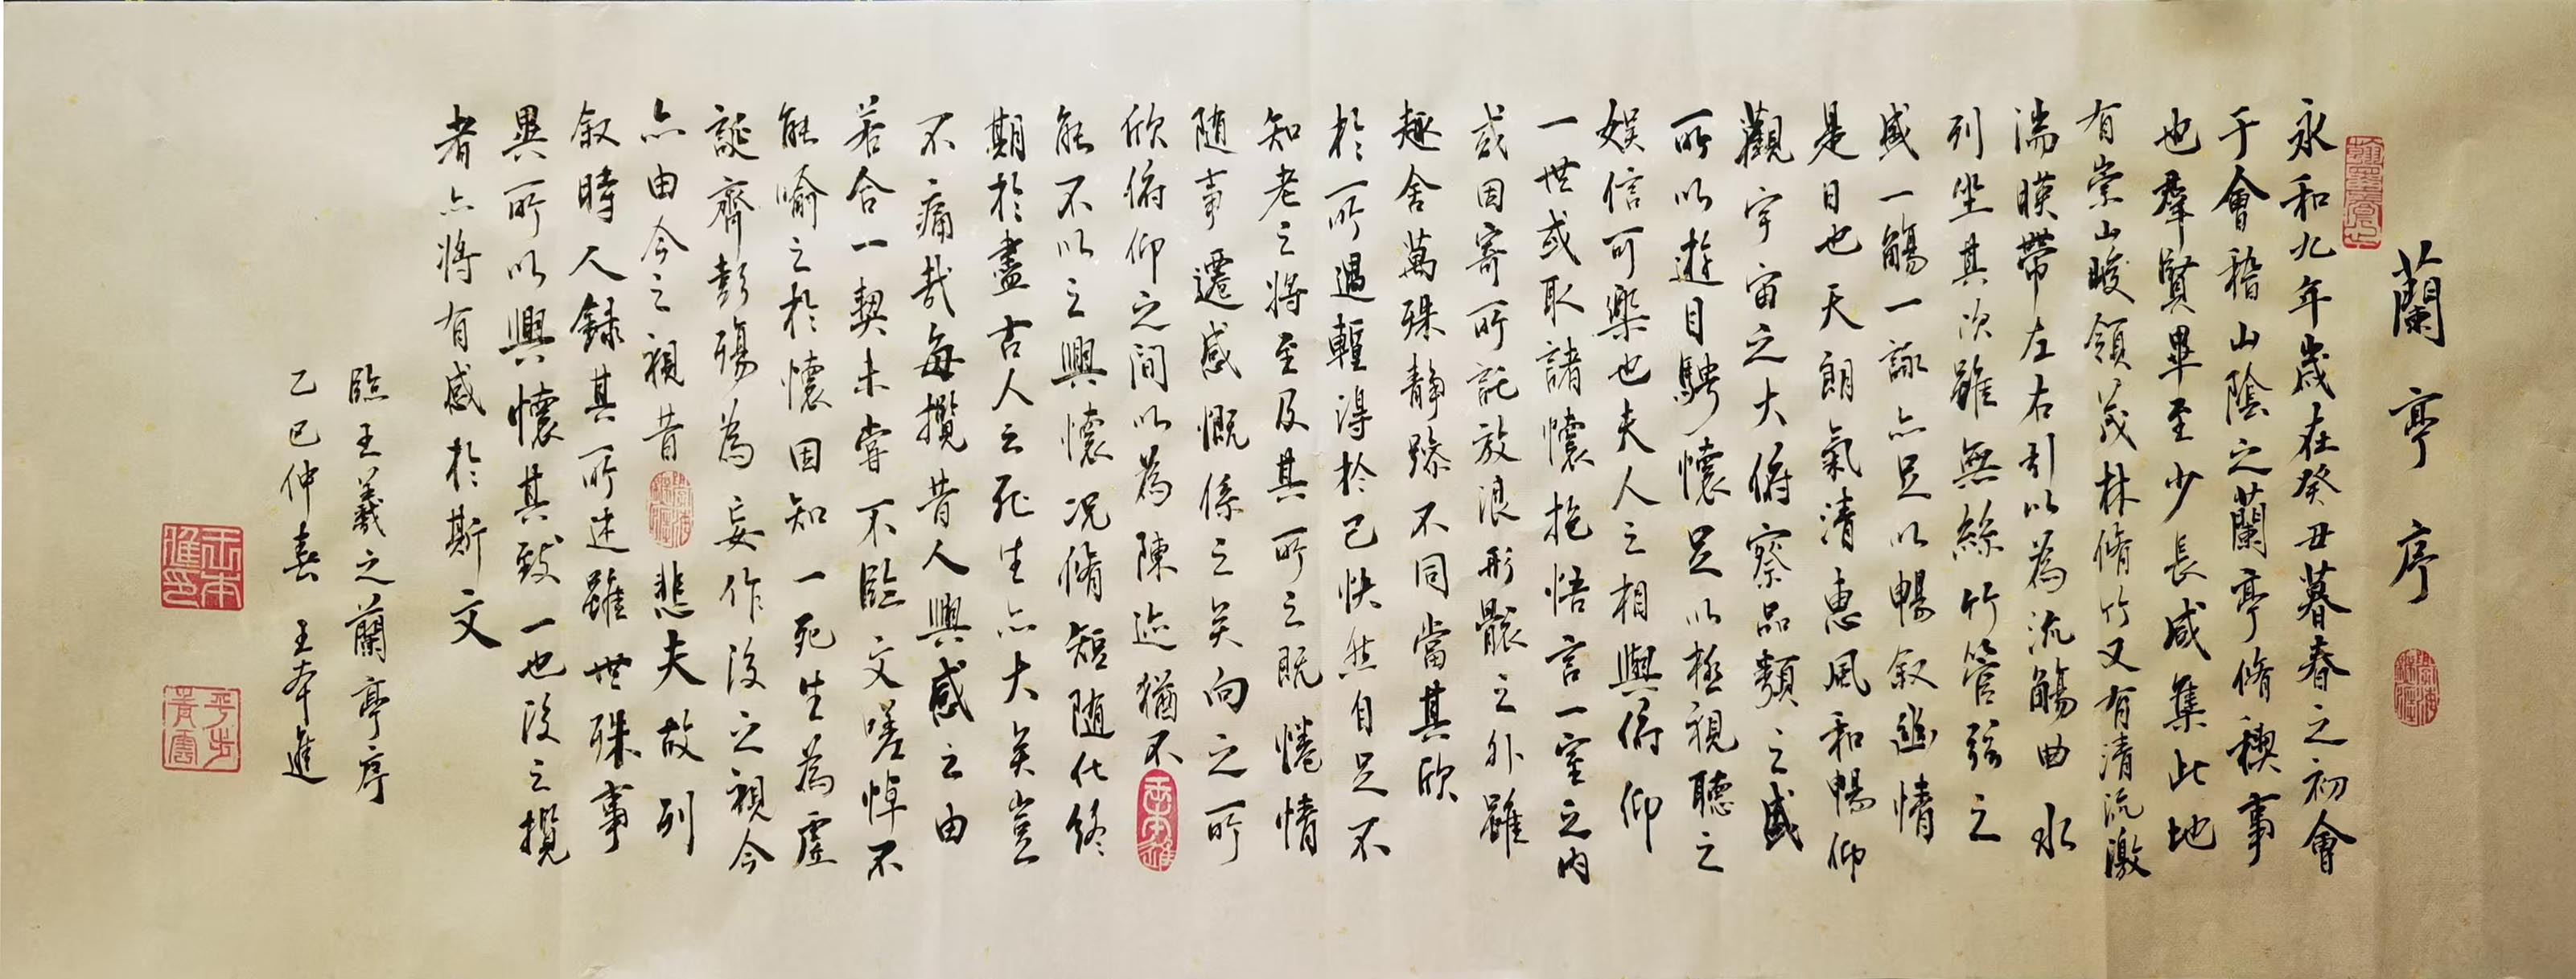 蘭亭序
永和九年歲在癸丑暮春之初會
于會稽山陰之蘭亭脩稧事
也羣賢畢至少長咸集此地
有崇山峻領茂林脩竹又有清流激
湍暎帶左右引以為流觴曲水
列坐其次雖無絲竹管弦之
盛一觴一詠亦足以暢叙幽情
是日也天朗氣清惠風和暢仰
觀宇宙之大俯察品類之盛
所以遊目騁懷足以極視聽之
娛信可樂也夫人之相與俯仰
一世或取諸懷抱悟言一室之內
或因寄所託放浪形骸之外雖
趣舍萬殊静躁不同當其欣
於所遇暫得於己快然自足不
知老之將至及其所之既惓情
随事遷感慨係之矣向之所
欣俯仰之間以為陳迹猶不
能不以之興懷況脩短随化終
期於盡古人云死生亦大矣豈
不痛哉每攬昔人興感之由
若合一契未嘗不臨文嗟悼不
能喻之於懷固知一死生為虛
誕齊彭殤為妄作後之視今
亦由今之視昔悲夫故列
叙時人録其所述雖世殊事
異所以興懷其致一也後之攬
者亦將有感於斯文
臨王羲之蘭亭序
乙巳仲春 王本進
王本進印
平步青雲
王本進